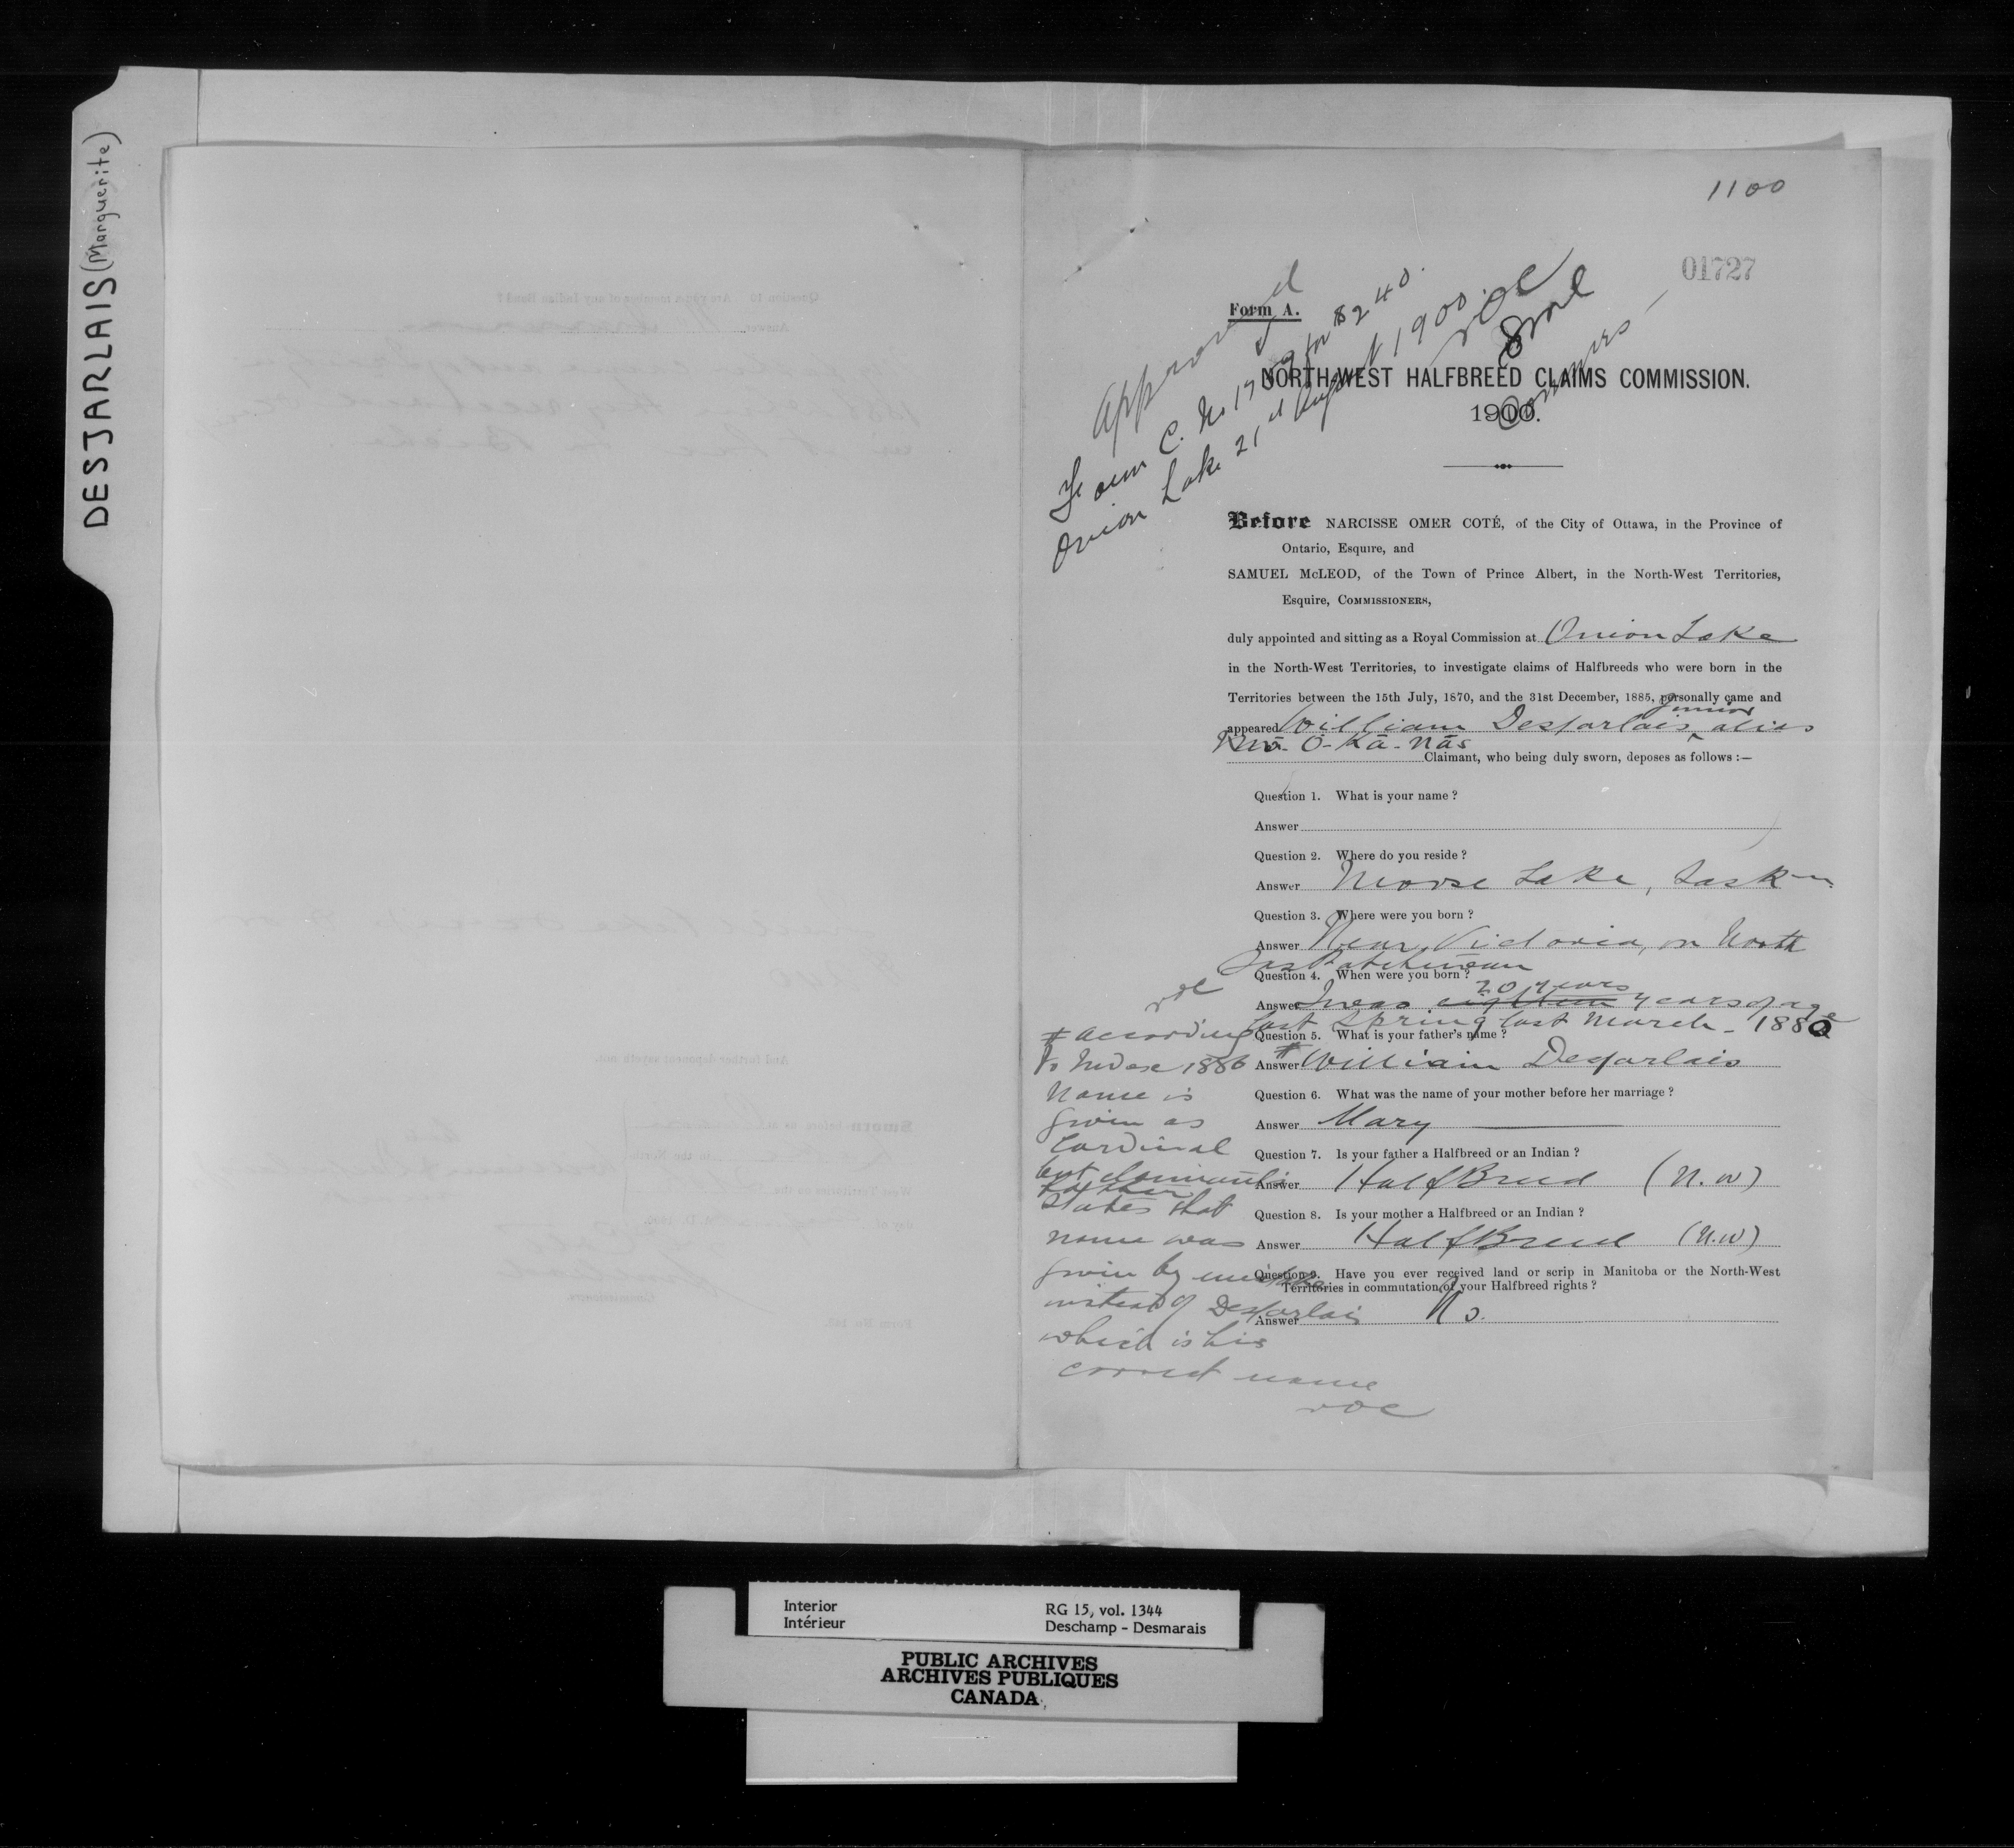 DESJARLAIS (Marguerite)
1100
01727
Form A.
Approved
Form C. No for $240.
Onion Lake 21st August 1900.
NORTH-WEST HALFBREED CLAIMS COMMISSION.
1900.
Before NARCISSE OMER COTÉ, of the City of Ottawa, in the Province of
Ontario, Esquire, and
SAMUEL McLEOD, of the Town of Prince Albert, in the North-West Territories,
Esquire, COMMISSIONERS,
duly appointed and sitting as a Royal Commission at Onion Lake
in the North-West Territories, to investigate claims of Halfbreeds who were born in the
Territories between the 15th July, 1870, and the 31st December, 1885, personally came and
junior
appeared William Desjarlais alias
Kwa-O-Kā-Nās
Claimant, who being duly sworn, deposes as follows :—
Question 1. What is your name ?
Answer
Question 2. Where do you reside ?
Answer Moose Lake, Saskn
Question 3. Where were you born ?
Answer Near Victoria, on North
Saskatchewan
Question 4. When were you born ?
20 years
Answer I was eighteen years of age
last Spring last March - 1880
Question 5. What is your father's name ?
Answer # William Desjarlais
Question 6. What was the name of your mother before her marriage ?
Answer Mary
Question 7. Is your father a Halfbreed or an Indian ?
Answer HalfBreed (N.W)
Question 8. Is your mother a Halfbreed or an Indian ?
Answer HalfBreed (N.W)
Question 9. Have you ever received land or scrip in Manitoba or the North-West
Territories in commutation of your Halfbreed rights ?
Answer No.
# According
to Index 1886
Name is
given as
Cardinal
but claimant's
father
states that
name was
given by mistake
instead of Desjarlais
which is his
correct name
Interior
Intérieur
RG 15, vol. 1344
Deschamp - Desmarais
PUBLIC ARCHIVES
ARCHIVES PUBLIQUES
CANADA